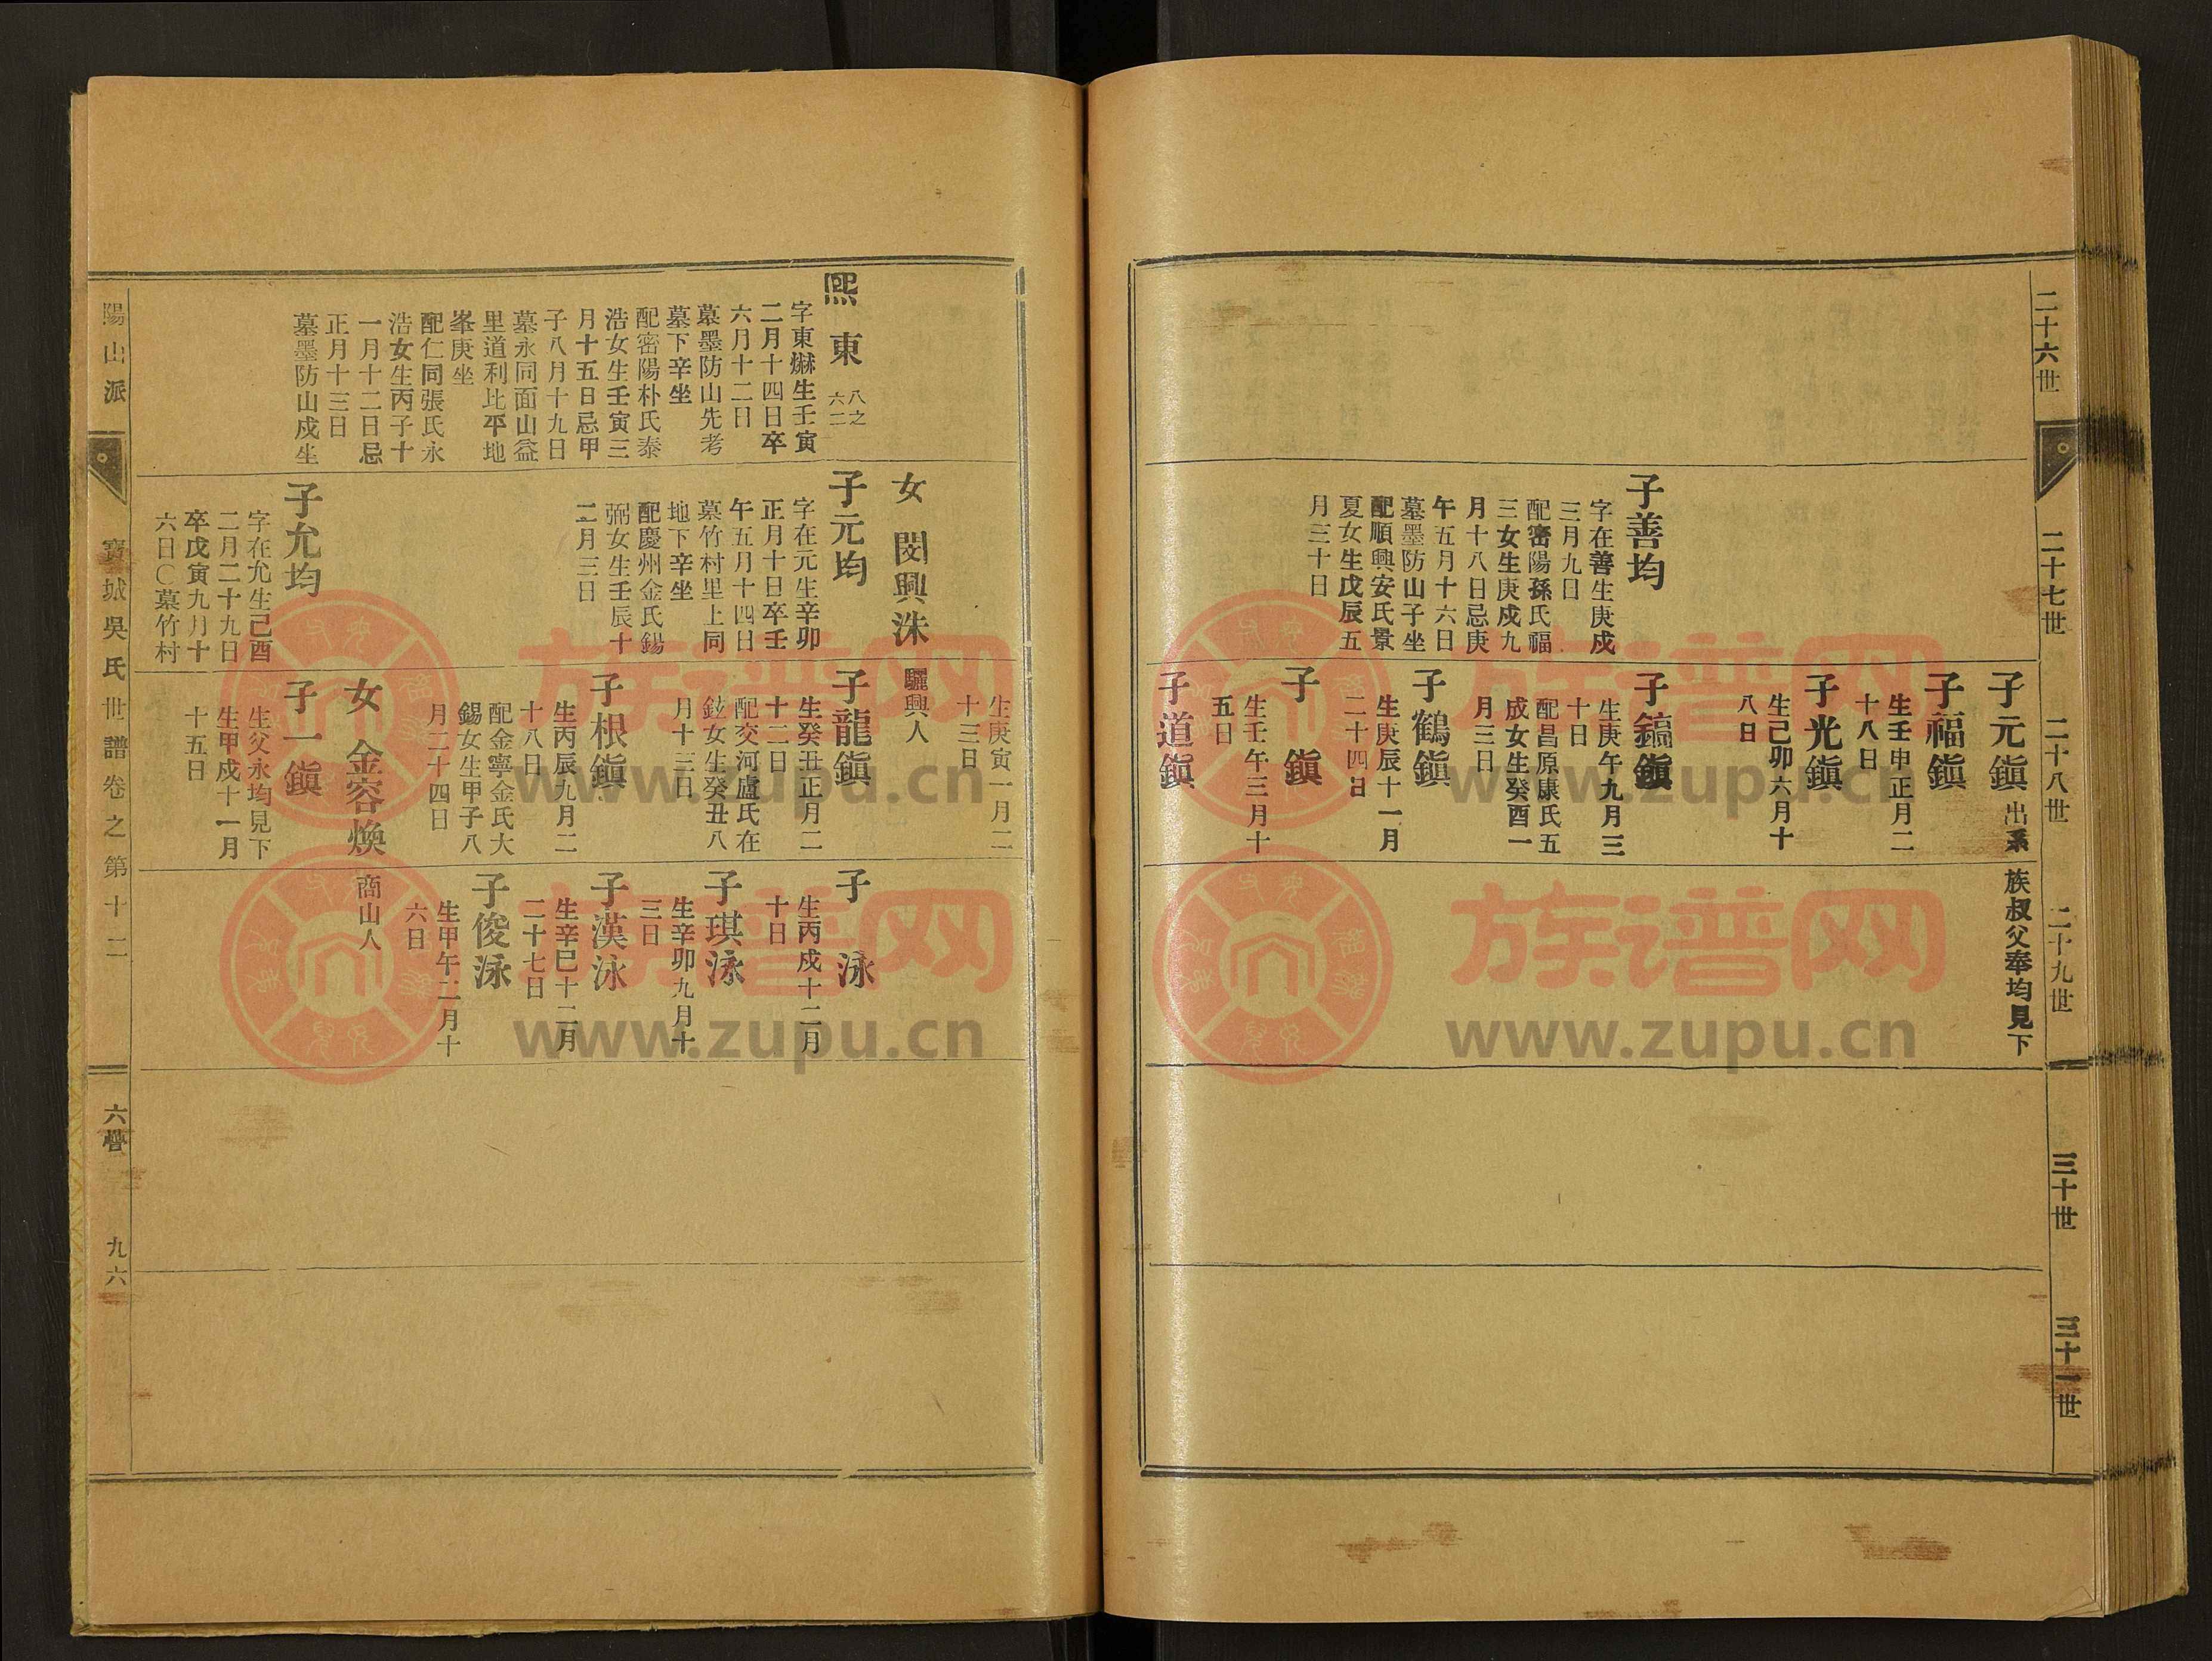 二十六世
二十七世
二十八世
二十九世
三十世
三十一世
子善均
字在善生庚戌
三月九日
配密陽孫氏福
三女生庚戌九
月十八日忌庚
午五月十六日
墓墨防山子坐
配順興安氏景
夏女生戊辰五
月三十日
子元鎭 出系
族叔父奉均見下
子福鎭
生壬申正月二
十八日
子光鎭
生己卯六月十
八日
子鎬鎭
生庚午九月三
十日
配昌原康氏五
成女生癸酉一
月三日
子鶴鎭
生庚辰十一月
二十四日
子 鎭
生壬午三月十
五日
子道鎭
生庚寅一月二
十三日
熙東 八之六二
字東爀生壬寅
二月十四日卒
六月十二日
墓墨防山先考
墓下辛坐
配密陽朴氏泰
浩女生壬寅三
月十五日忌甲
子八月十九日
墓永同面山益
里道利比平地
峯庚坐
配仁同張氏永
浩女生丙子十
一月十二日忌
正月十三日
墓墨防山戌坐
女 閔興洙
驪興人
子元均
字在元生辛卯
正月十日卒壬
午五月十四日
墓竹村里上同
地下辛坐
配慶州金氏錫
弼女生壬辰十
二月三日
子允均
字在允生己酉
二月二十九日
卒戊寅九月十
六日○墓竹村
子龍鎭
生癸丑正月二
十二日
配交河盧氏在
鉉女生癸丑八
月十三日
子根鎭
生丙辰九月二
十八日
配金寧金氏大
錫女生甲子八
月二十四日
女 金容煥
商山人
子一鎭
生父永均見下
生甲戌十一月
十五日
子 泳
生丙戌十二月
十日
子琪泳
生辛卯九月十
三日
子漢泳
生辛巳十二月
二十七日
子俊泳
生甲午二月十
六日
陽山派
寶城吳氏世譜卷之第十二
九六
族谱网
www.zupu.cn
族谱网
www.zupu.cn
族谱网
www.zupu.cn
族谱网
www.zupu.cn